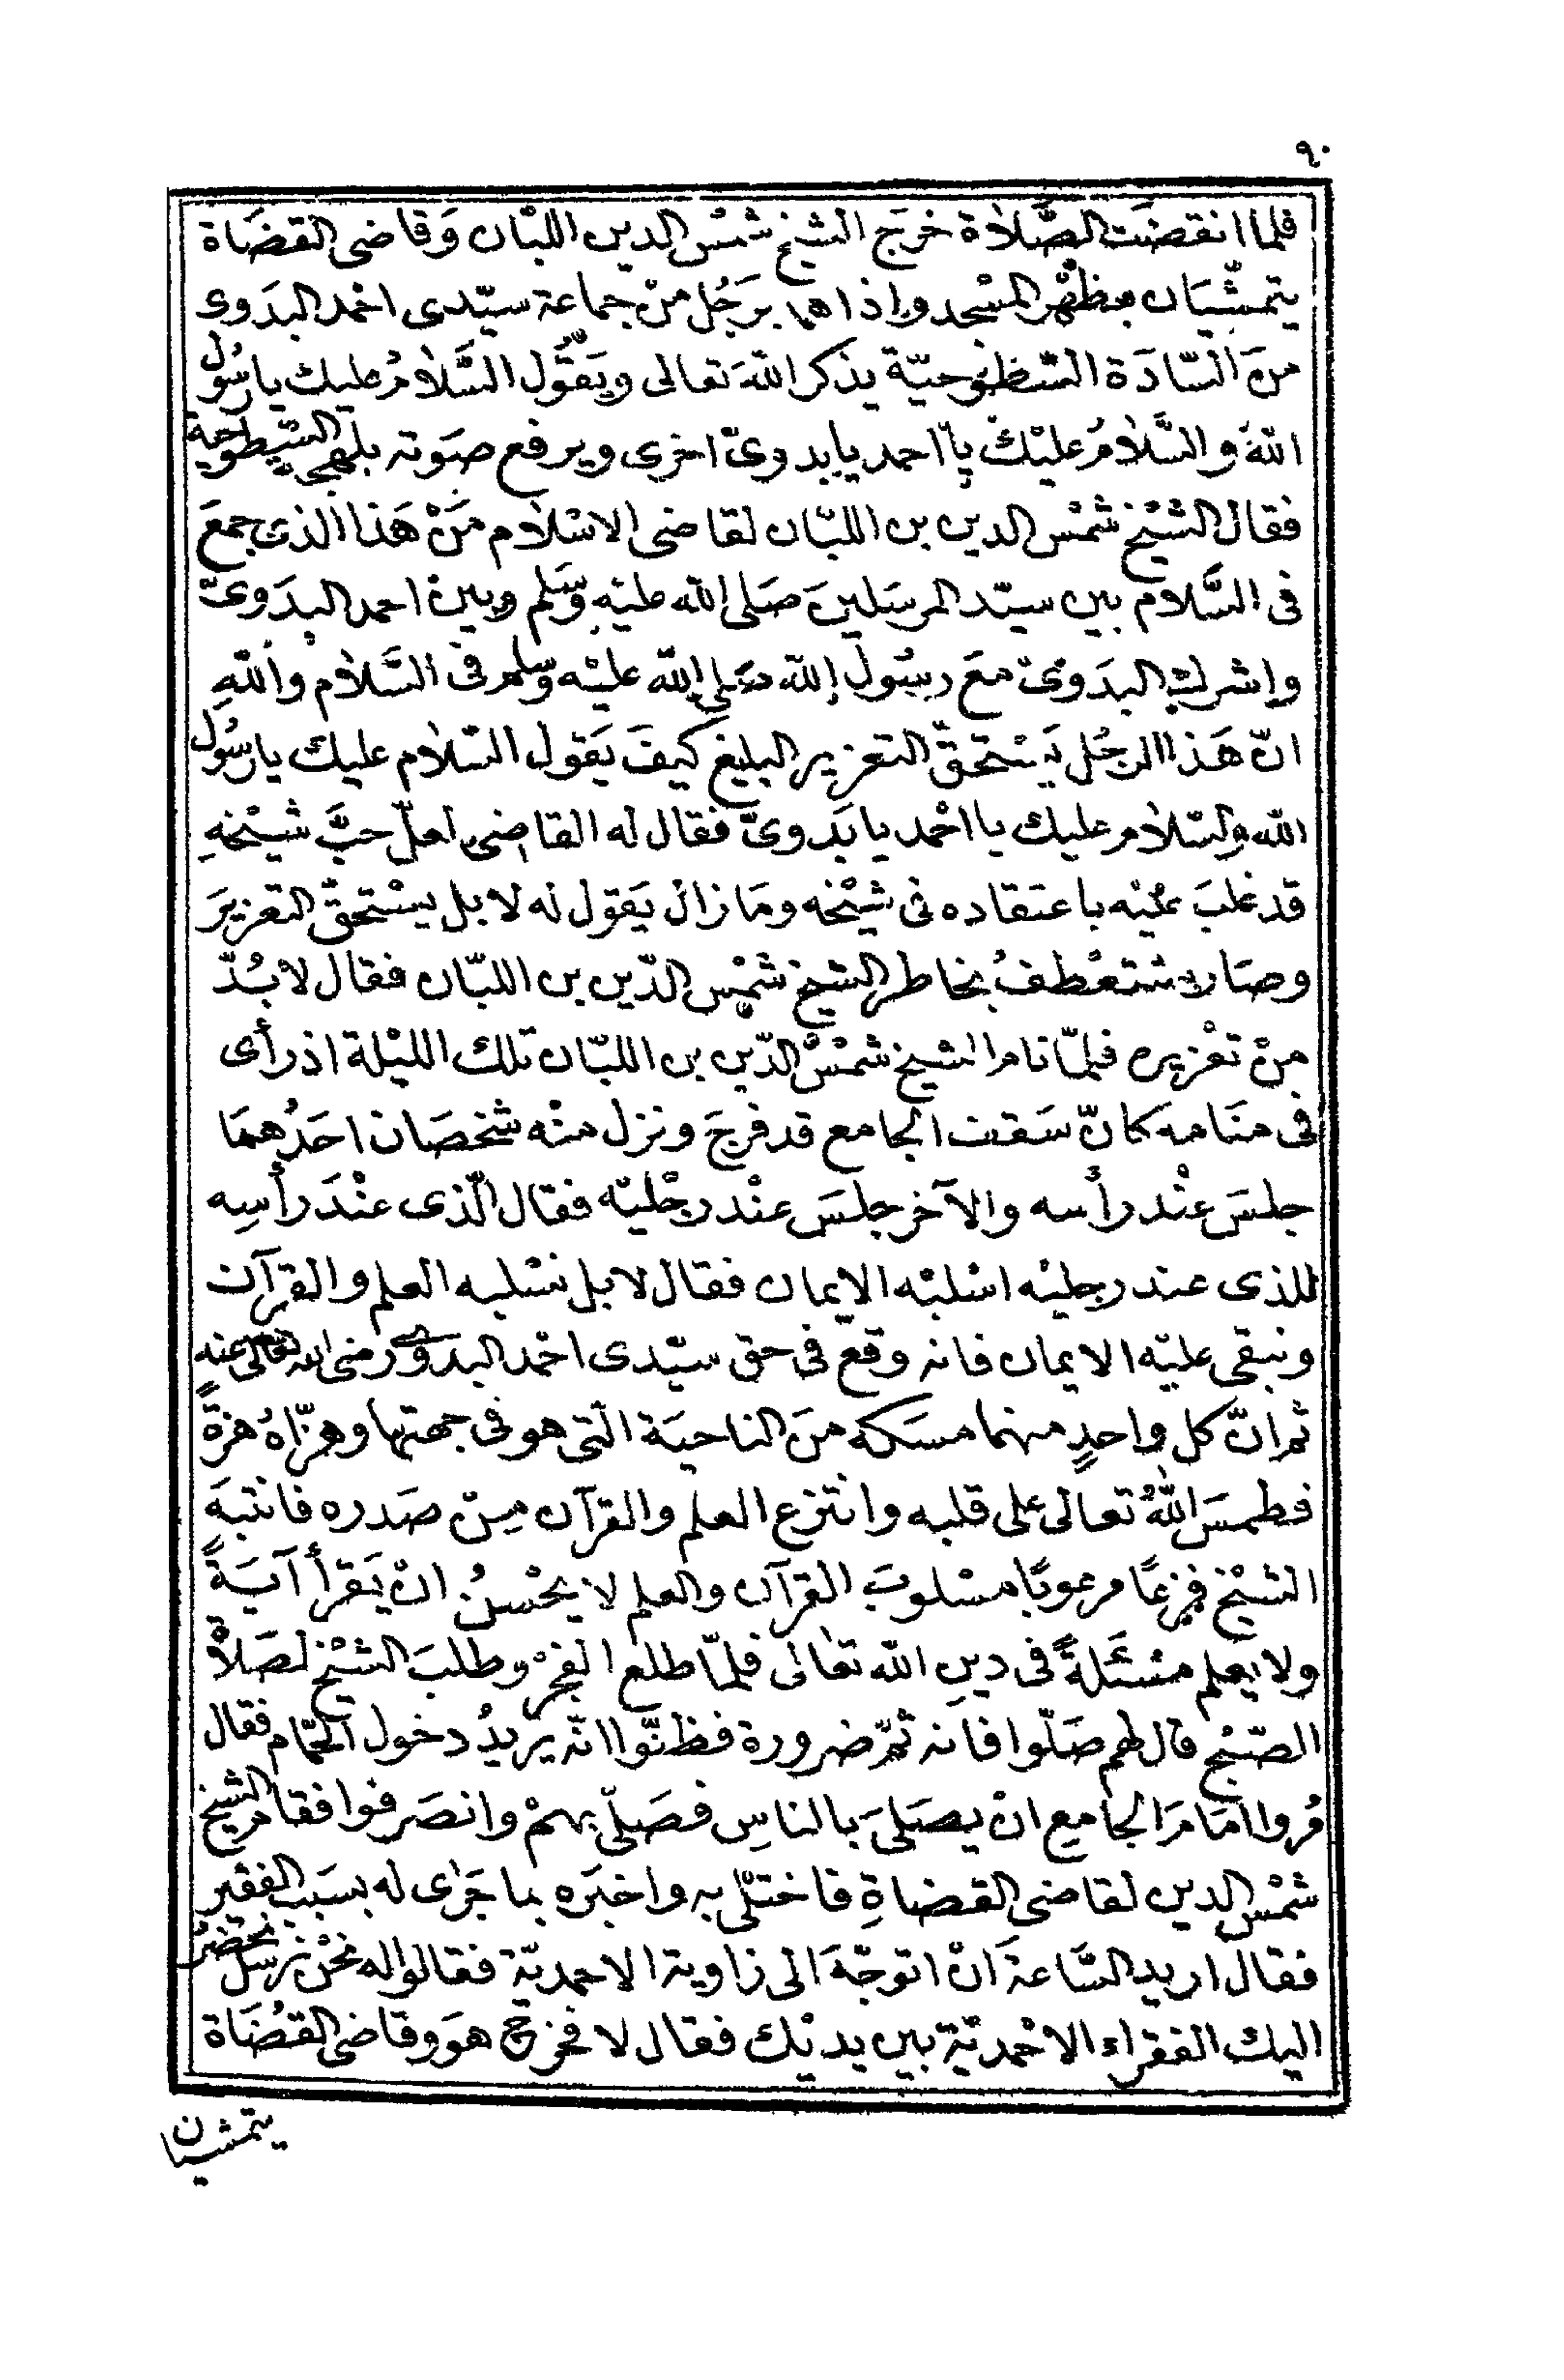 ٩٠
فلما انقضَت الصَّلاٰة خرَج الشيخ شمْس الدين اللبّان وَقاضى القضَاة
يتمشّيَان بظهْر المسْجد واذا هما برَجُل منْ جماعة سيّدى احْمد البدَوى
منَ السّادَة السّطوحيّة يذكر اللهَ تعالى ويَقُول السَّلاٰمُ عليك يا رسُول
اللهَ والسَّلاٰمُ عليْكَ يا احمد يا بدوىّ اخرى ويرفع صَوته بلهجة السّطوحية
فقال الشيْخ شمْس الدين بن اللبّان لقاضى الاسْلاٰم مَنْ هَذا الذى جمعَ
فى السَّلاٰم بين سيّد المرسَلينَ صَلى الله عليْهِ وَسَلم وبين احمد البدَوىّ
واشرك البدَوىّ معَ رسُول الله صَلى الله عليْه وسَلم فى السَّلاٰم واللهِ
انّ هَذا الرجُل يَسْتحقّ التعْزير البليغ كيفَ يَقول السّلاٰم عليك يا رسُول
الله والسّلاٰم عليك يا احْمد يا بَدوىّ فقال له القاضى لعلّ حبَّ شيْخهِ
قد غلبَ عليْه باعتقاده فى شيْخه ومَا زال يَقول له لا بل يسْتحقّ التعزيرَ
وصَار يسْتعْطفُ بخاطر الشيخ شمْس الدّين بن اللبّان فقال لا بُدّ
منْ تعْزيره فلمّا نام الشيخ شمْسُ الدّين بن اللبّان تلك الليْلة اذ رأى
فى منَامه كانّ سَقف الجامع قد فرجَ ونزل منْه شخصَان احَدُهمَا
جلسَ عنْد رأسه والآخر جلسَ عنْد رجْليْه فقال الّذى عنْدَ رأسِه
للذى عند رجليْه اسْلبْه الايمان فقال لا بل نسْلبه العلم والقرآن
ونبقى عليْه الايمان فانه وقعَ فى حق سيّدى احْمد البدوى رضى الله تعالى عنه
ثم انّ كل واحدٍ منهما مسَكه منَ الناحيَة الّتى هو فى جهتها وهزّاهُ هزةً
فطمسَ اللهُ تعالى على قلبه وانتزع العلم والقرآن مِنْ صَدره فانتبهَ
الشيْخ فزِعًا مرعوبًا مسْلوبَ القرآن والعلم لا يحْسنُ انْ يَقرأ آيَةً
ولا يعلم مسْئَلةً فى دينِ الله تعالى فلمّا طلع الفجْر وطلبَ الشيْخ لصَلاٰة
الصّبْح قال لهم صَلّوا فانه ثمّ ضرورة فظنّوا انّه يريدُ دخول الحمّام فقال
مُروا امَامَ الجامع انْ يصَلىَ بالناسِ فصَلّى بهمْ وانصَرفوا فقام الشيخ
شمْس الدين لقاضى القضاةِ فاختلى به واخبَره بما جَرٰى له بسَبب الفقير
فقال اريد السَّاعةَ انْ اتوجّهَ الى زاوية الاحمديّة فقالوا له نحْن نرسل نحضرُ
اليك الفقراء الاحْمديّة بين يديْك فقال لا فخرج هوَ وقاضى القضَاة
يتمشيان